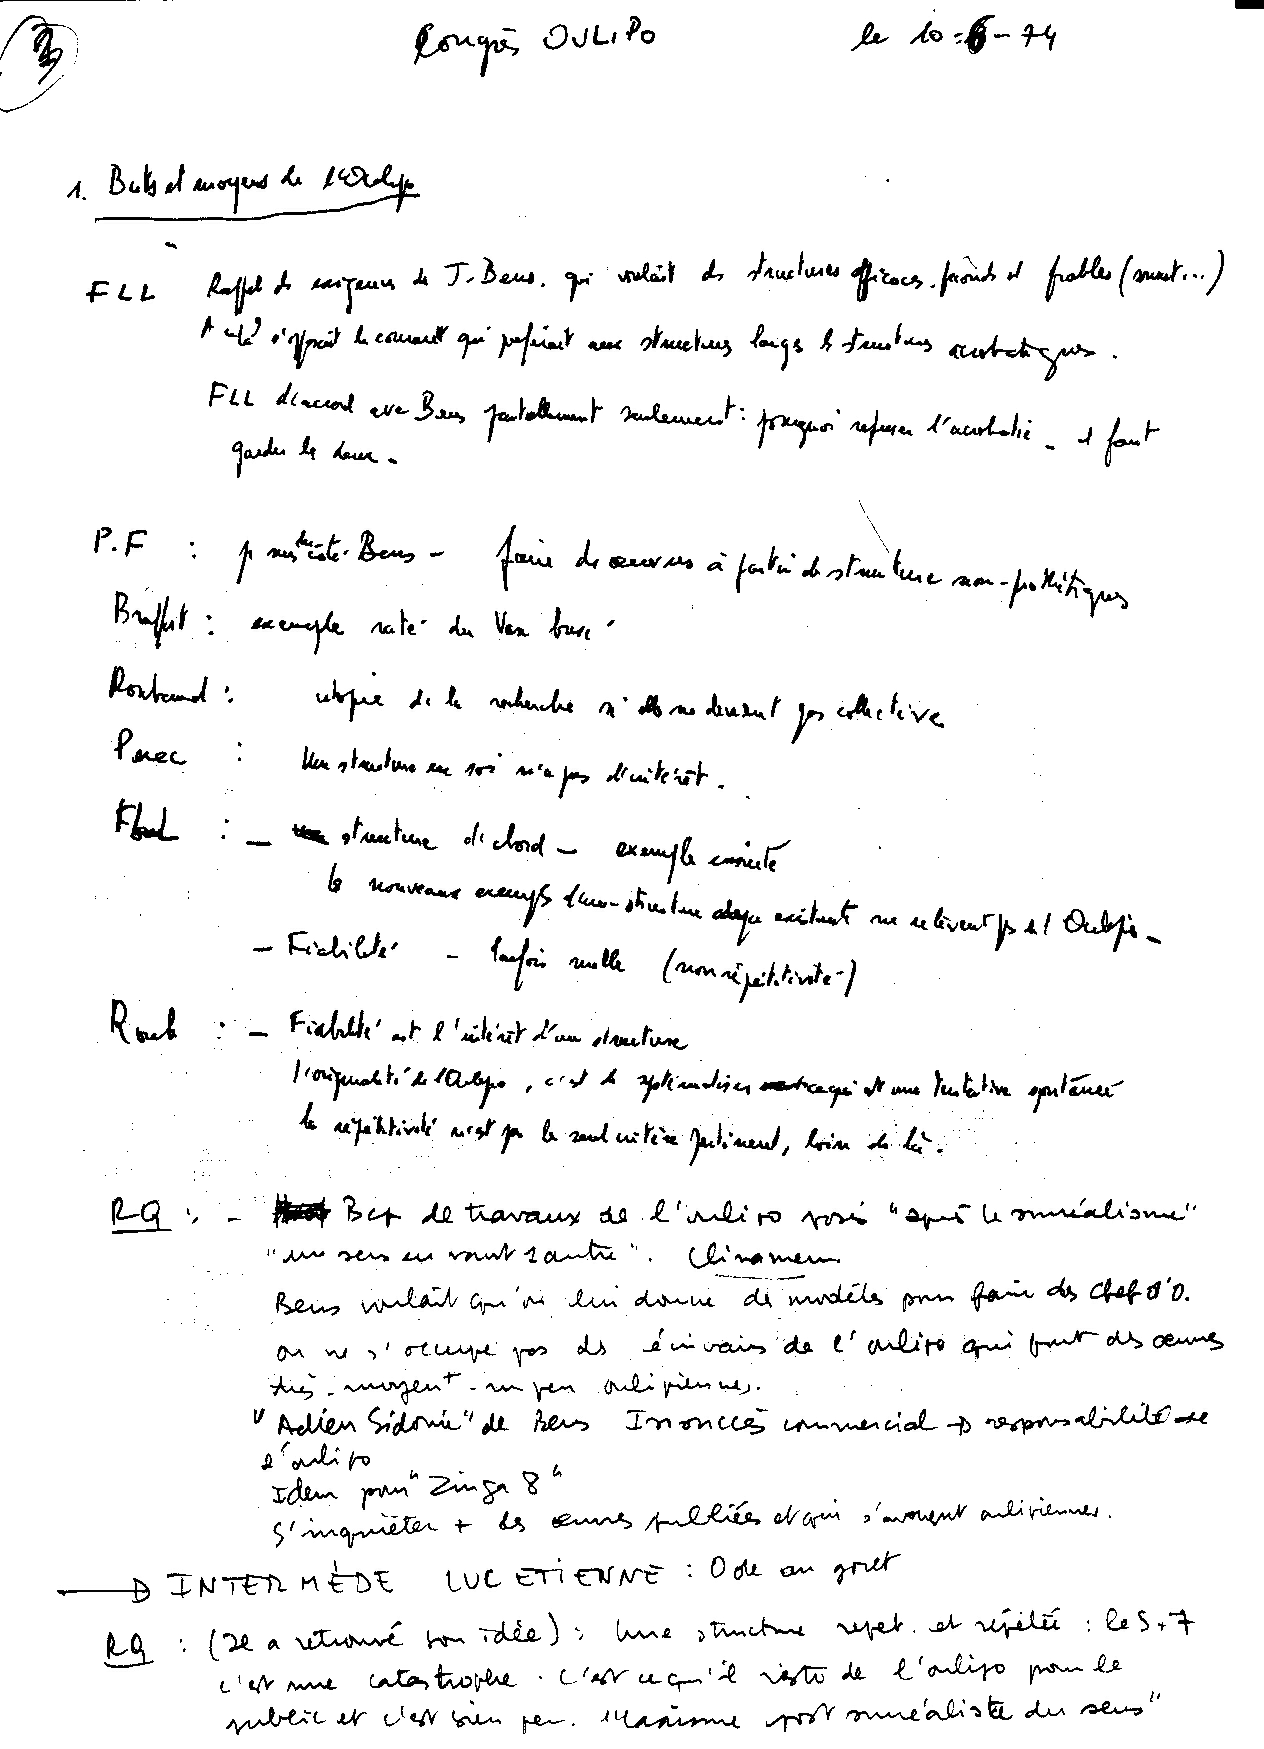 Congrès OULIPO le 10-6-74
1. Buts et moyens de l'Oulipo
FLL Rappel des exigences de J. Bens, qui voulait des structures efficaces, féconds et fiables (sonnet...)
A cela s'opposait le courant qui préférait aux structures larges les structures acrobatiques.
FLL d'accord avec Bens partiellement seulement : pourquoi refuser l'acrobatie - il faut
garder les deux -
P.F : du côté Bens - faire des œuvres à partir de structure non-poétiques
Braffort : exemple raté du Van
Roubaud : utopie de la recherche si elle ne devient pas collective
Perec : Une structure en soi n'a pas d'intérêt.
: - structure d'abord - exemple ensuite
les nouveaux exemples d'une structure déjà existante ne relèvent pas de l'Oulipo -
- Fiabilité - parfois nulle (non répétitivité)
Roub : - Fiabilité est l'intérêt d'une structure
l'originalité de l'Oulipo, c'est de systématiser ce qui est une tentative spontanée
la répétitivité n'est pas le seul critère pertinent, loin de là.
RQ : - Bcp de travaux de l'oulipo "après le surréalisme"
"un sens en vaut 1 autre". Clinamen
Bens voulait qu'on lui donne des modèles pour faire des chef d'O.
on ne s'occupe pas des écrivains de l'oulipo qui font des œuvres
très - moyent - un peu oulipiennes.
"Adrien Sidonie" de Bens Insuccès commercial → responsabilité de
l'oulipo
Idem pour "Zinga 8"
S'inquiéter + des œuvres publiées et qui s'avouent oulipiennes.
→ INTERMÈDE LUC ETIENNE : Ode au goret
RQ : (Il a retrouvé son idée) : Une structure répét. et répétée : le S+7
c'est une catastrophe. C'est ce qu'il reste de l'oulipo pour le
public et c'est bien peu. post surréaliste du sens"